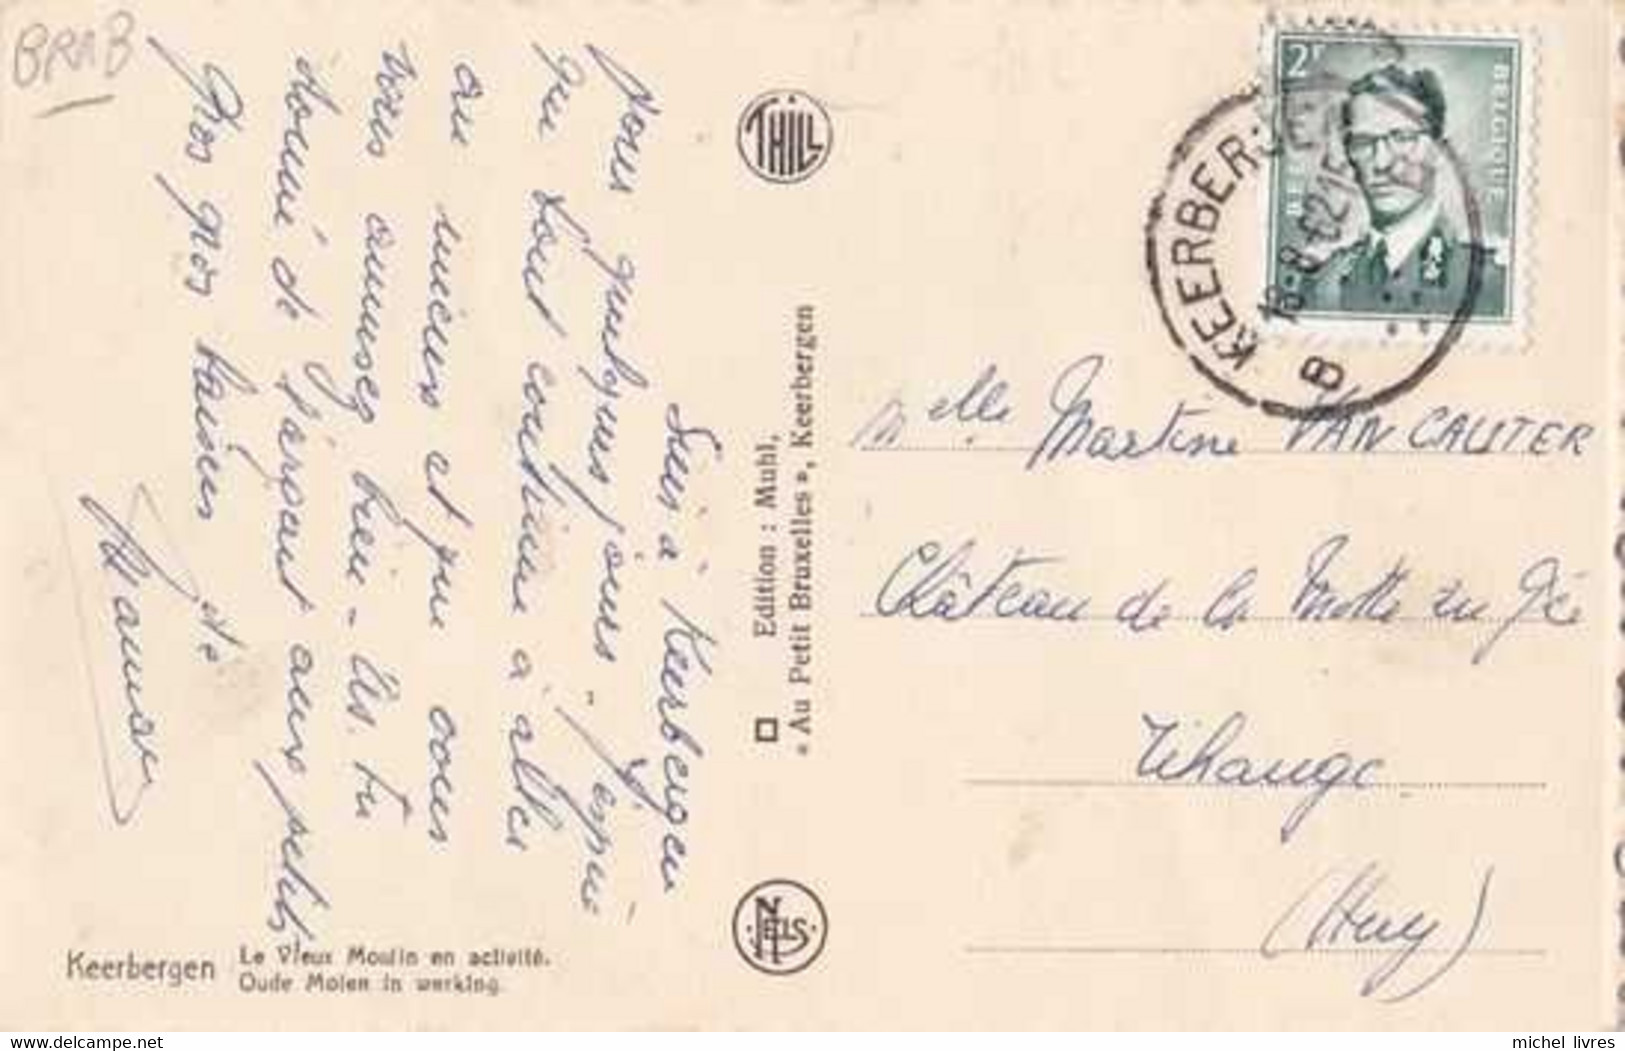 BRAB
Suis à Keerbergen
pour quelques jours, j'espère
que tout continue à aller
au mieux et que vous
vous amusez bien - As-tu
donné de l'argent aux petits
Gros gros baisers
de
THILL
Edition : Muhl,
« Au Petit Bruxelles », Keerbergen
NELS
2F
BELGIQUE
KEERBERGEN
B
Melle Martine VAN CAUTER
Château de la Motte
Tihange
(Huy)
Keerbergen
Le Vieux Moulin en activité.
Oude Molen in werking.
michel_livres